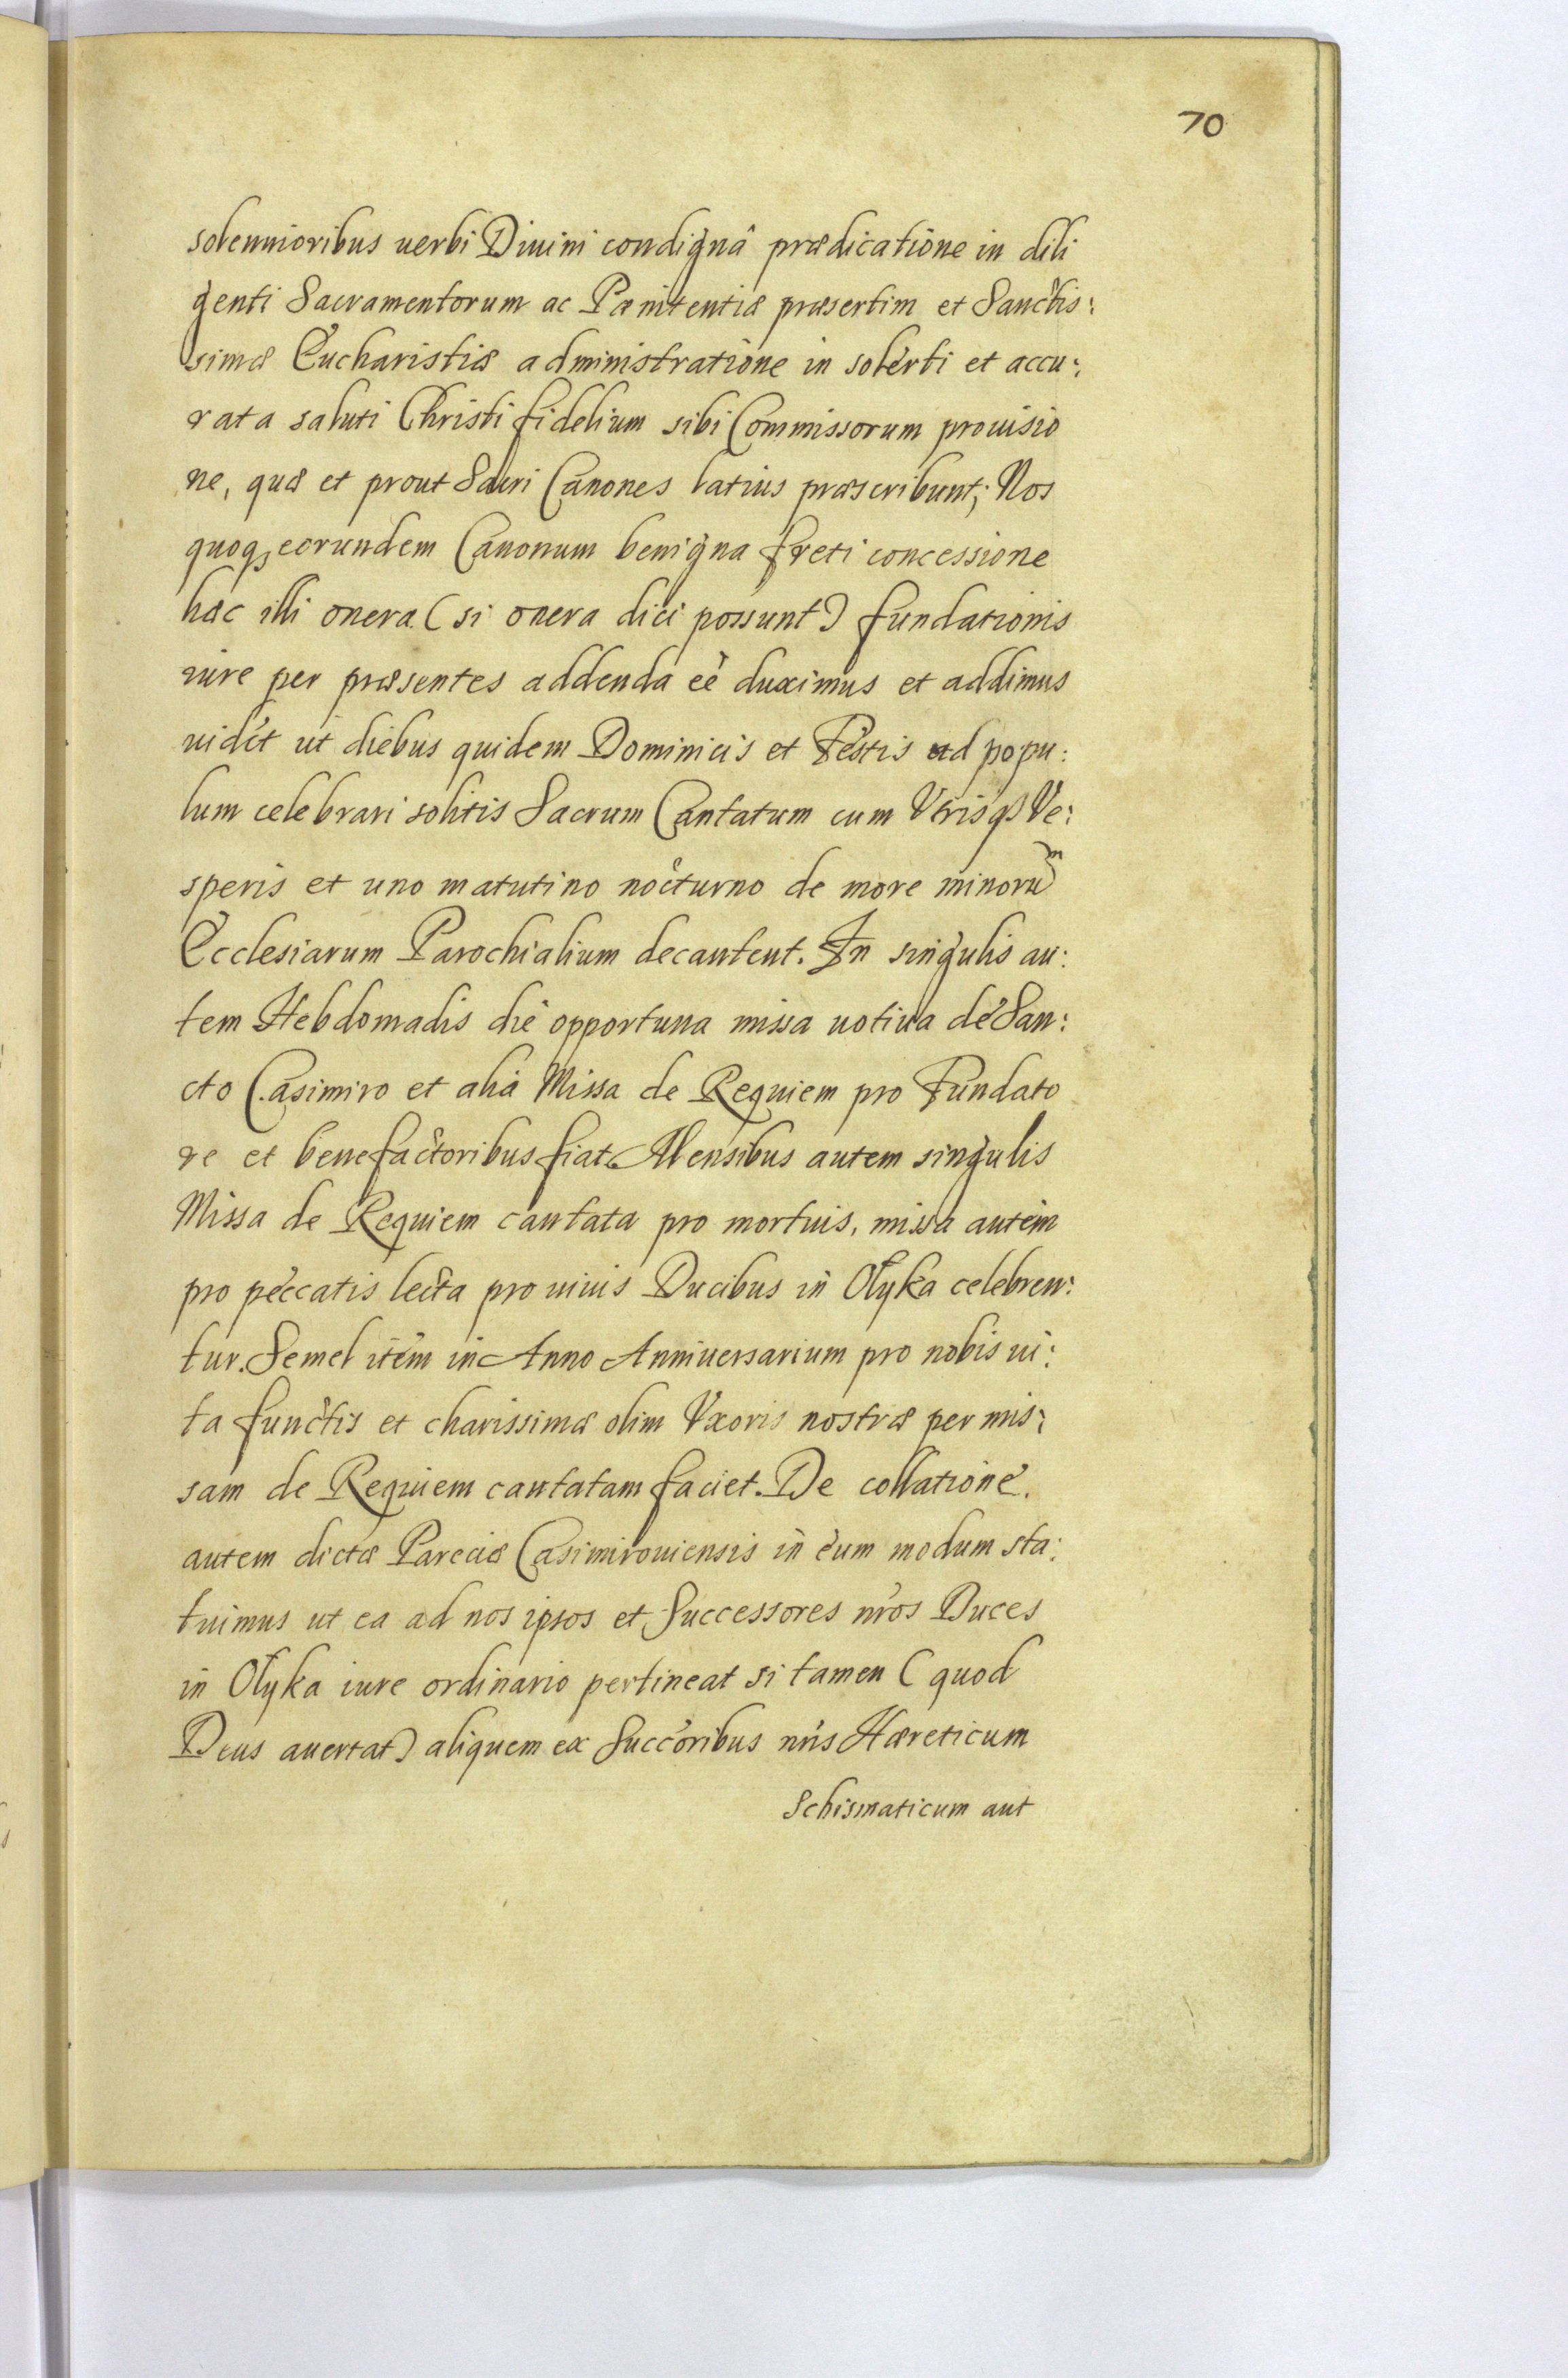 70
solennioribus uerbi Diuini condignâ prædicatione in dili
genti Sacramentorum ac Pænitentiæ præsertim et Sanctis:
simæ Eucharistiæ administratione in solerti et accu:
rata saluti Christi fidelium sibi Commissorum prouisio
ne, quæ et prout Sacri Canones latius præscribunt; Nos
quoq, eorundem Canonum benigna freti concessione
hæc illi onera (si onera dici possunt) fundationis
iure per præsentes addenda eè duximus et addimus
uidét ut diebus quidem Dominicis et Festis ad popu:
lum celebrari solitis Sacrum Cantatum cum Vtrisq Ve:
speris et uno matutino nocturno de more minorũ
Ecclesiarum Parochialium decantent. In singulis au:
tem Hebdomadis die opportuna missa uotiua de San:
cto Casimiro et alia Missa de Requiem pro Fundato
re et benefactoribus fiat. Mensibus autem singulis
Missa de Requiem cantata pro mortuis, missa autem
pro peccatis lecta pro uiuis Ducibus in Ołyka celebren:
tur. Semel item in Anno Anniuersarium pro nobis ui:
ta functis et charissimæ olim Vxoris nostræ per mis:
sam de Requiem cantatam faciet. De collatione.
autem dictæ Pareciæ Casimirouiensis in eum modum sta:
tuimus ut ea ad nos ipsos et Successores nr̃os Duces
in Ołyka iure ordinario pertineat si tamen (quod
Deus auertat) aliquem ex Succoribus nr̃is Hæreticum
Schismaticum aut